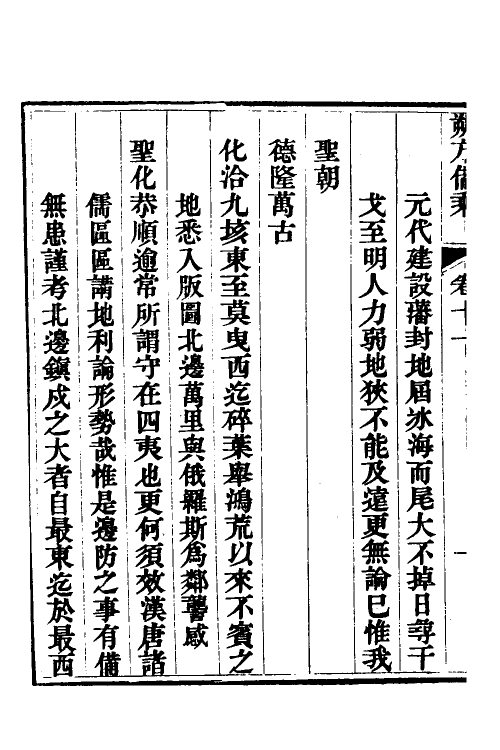 朔方備乘
卷十一
元代建設藩封地屆冰海而尾大不掉日尋干
戈至明人力弱地狹不能及遠更無論已惟我
聖朝
德隆萬古
化洽九垓東至莫曳西迄碎葉舉鴻荒以來不賓之
地悉入版圖北邊萬里與俄羅斯為鄰讋威
聖化恭順逾常所謂守在四夷也更何須效漢唐諸
儒區區講地利論形勢哉惟是邊防之事有備
無患謹考北邊鎮戍之大者自最東迄於最西